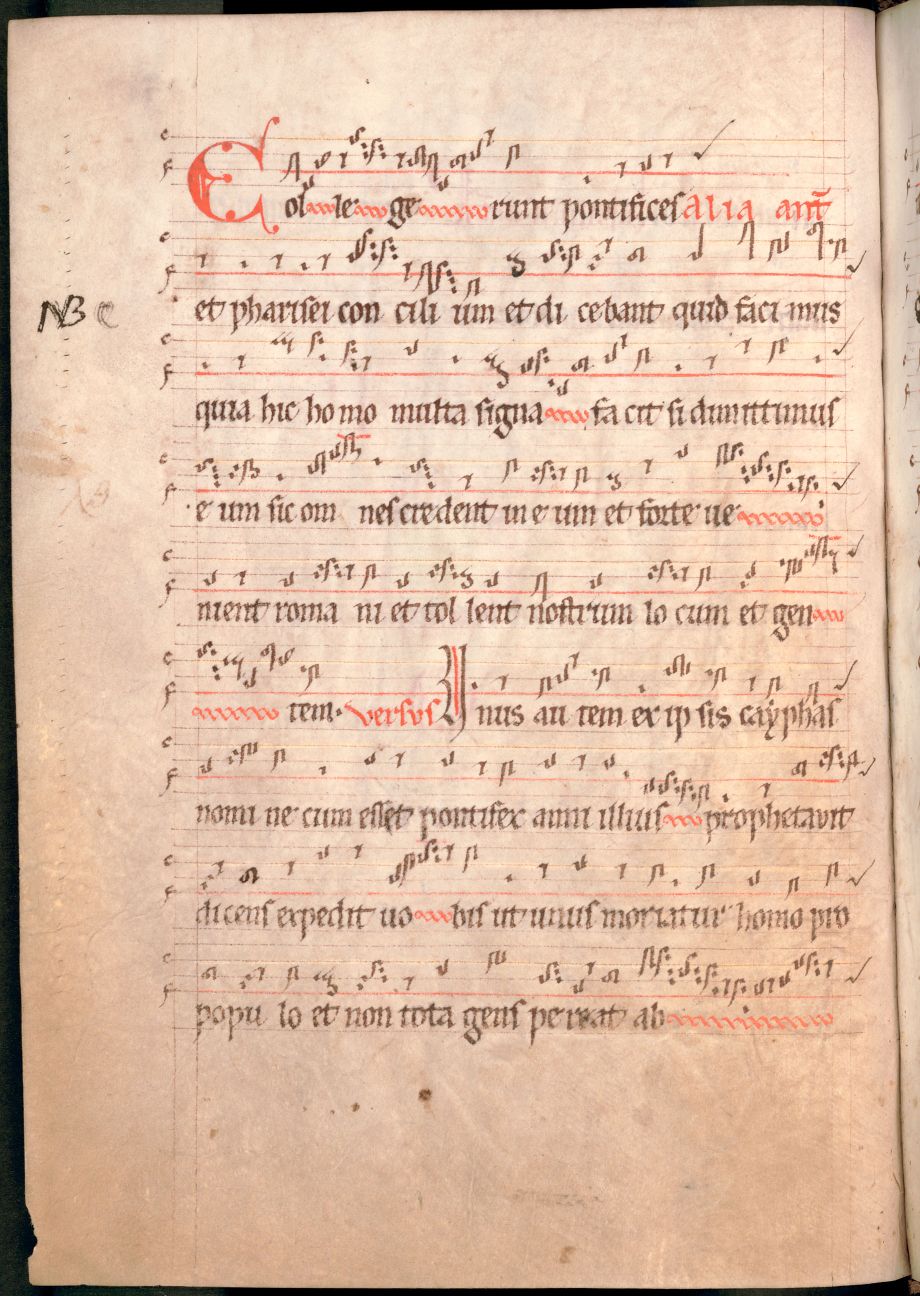 Col le ge runt pontifices alia ant
et pharisei con cili um et di cebant quid faci mus
NB C
quia hic homo multa signa fa cit si dimittimus
e um sic om nes credent in e um et forte ve
nient roma ni et tol lent nostrum lo cum et gen
tem. versus Unus au tem ex ip sis cayphas
nomi ne cum esset pontifex anni illius prophetavit
dicens expedit uo bis ut unus moriatur homo pro
popu lo et non tota gens pereat ab